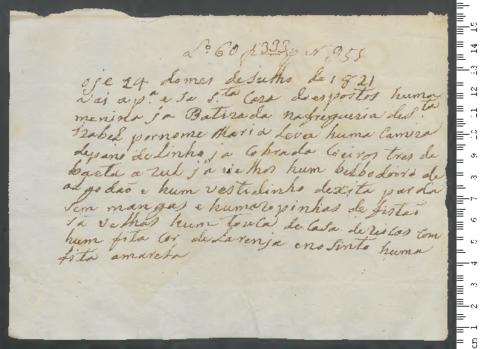 Lº 60 f 333 Nº 951
oje 24 do mes de Julho de 1821
vai a p.ª esta S.ta Caza dos espostos huma
menina Ja Batizada na freguezia de S.ta
Izabel por nome Maria Leva huma Camiza
de pano de linho ja Cobrada Coeiros tres de
baeta azul já velhos hum de bodoens de
algodão e hum vestidinho de xita parda
sem mangas e huma ropinhas de fistão
já velhos hum touca de Casa de riscos com
hum fita Cor de Larenja e no sinto huma
fita amarela